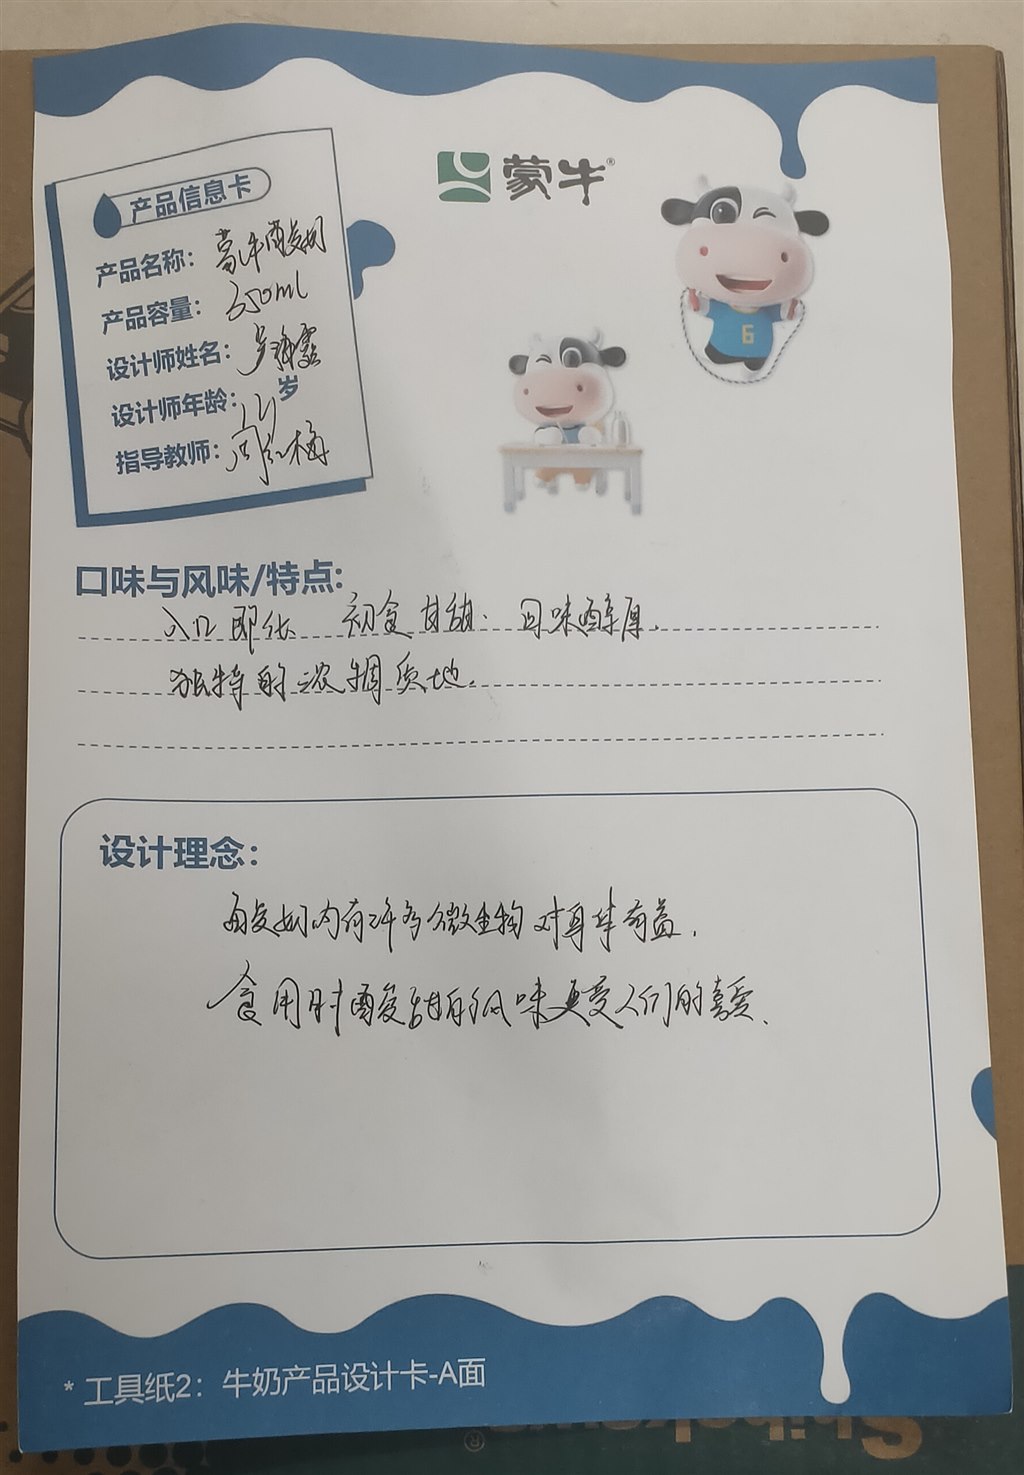 蒙牛®
产品信息卡
产品名称：蒙牛酸奶
产品容量：350ml
设计师姓名：
设计师年龄： 岁
指导教师：
6
口味与风味/特点:
入口即化 初食甘甜. 回味醇厚.
独特的浓稠质地.
设计理念：
酸奶内有许多微生物对身体有益.
食用时酸甜的风味更受人们的喜爱.
* 工具纸2：牛奶产品设计卡-A面